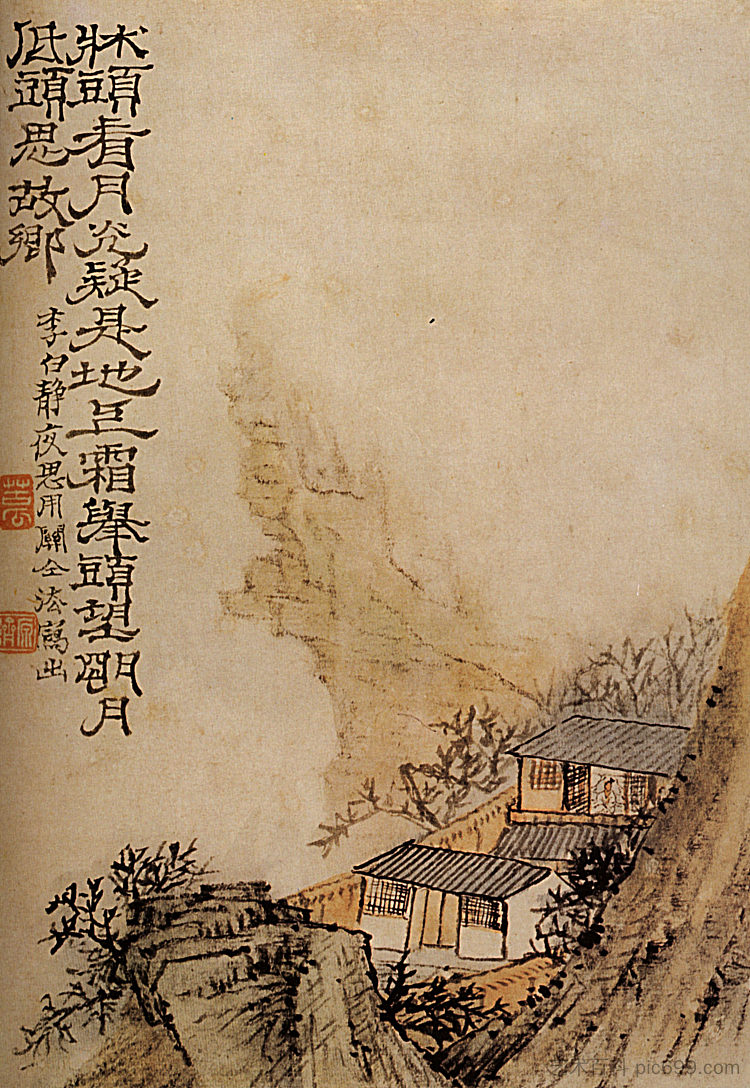 牀頭看月光疑是地上霜舉頭望明月
低頭思故鄉
李白靜夜思用關仝法寫出
pic699.com